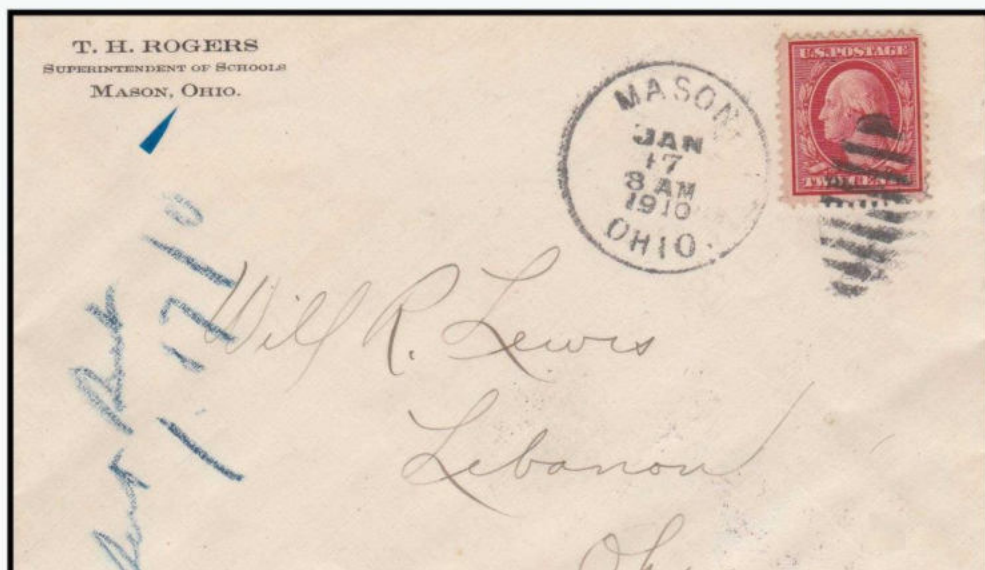 T. H. ROGERS
SUPERINTENDENT OF SCHOOLS
MASON, OHIO.
MASON
JAN
17
8 AM
1910
OHIO.
U.S. POSTAGE
TWO CENTS
Will R. Lewis
Lebanon
1.17/10